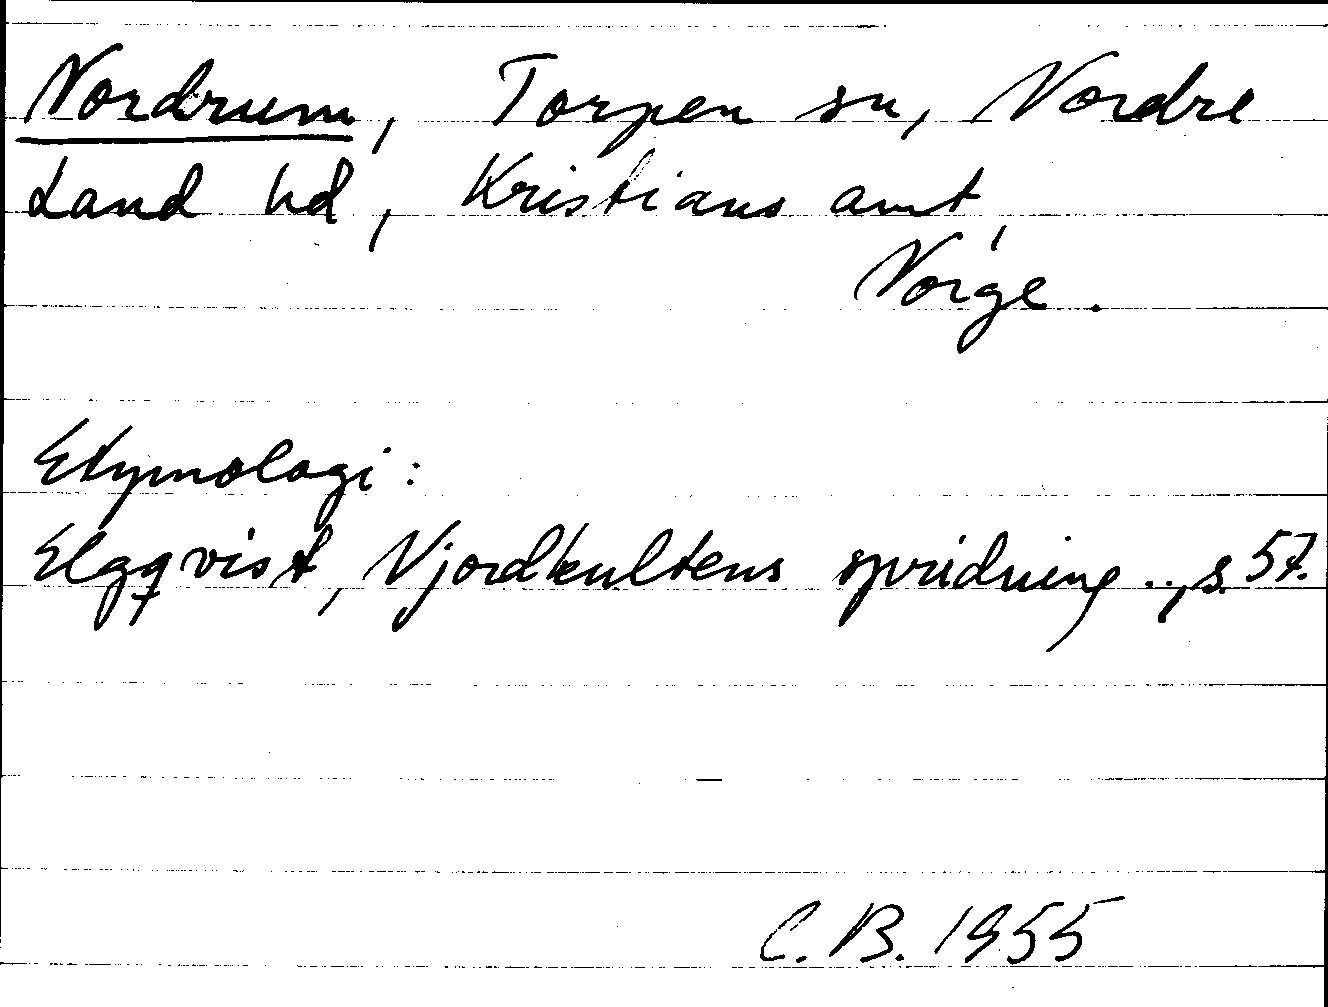 Nordrum, Torpen sn, Nordre
Land hd, Kristians amt,
Norge.
Etymologi:
Elgqvist, Njordkultens spridning .., s. 57.
C. B. 1955